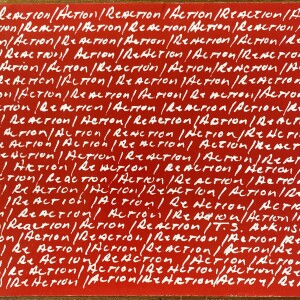 REACTION/ACTION/REACTION/ACTION/REACTION/
REACTION/ACTION/REACTION/ACTION/REACTION
ACTION/REACTION/ACTION/REACTION/ACTION
ACTION/REACTION/ACTION/REACTION/
/ACTION/REACTION/ACTION/REACTION
REACTION/ACTION/REACTION/ACTION/
ACTION/REACTION/ACTION/REACTION/
/REACTION/ACTION/REACTION/ACTION
REACTION/ACTION/REACTION/ACTION/
REACTION/ACTION/REACTION/ACTION/
ACTION/REACTION/ACTION/REACTION/
/ACTION/REACTION/ACTION/REACTION
REACTION/ACTION/REACTION/ACTION/
/ACTION/REACTION/ACTION/REACTION
REACTION/ACTION/REACTION/ACTION
REACTION/ACTION/REACTION/ACTION/
ACTION/REACTION/ACTION/REACTION/
/REACTION/ACTION/REACTION/T.S.
/ACTION/REACTION/REACTION/ACTION
/REACTION/ACTION/REACTION/ACTION/
REACTION/ACTION/REACTION/ACTION
/REACTION/ACTION/REACTION/ACTION/
REACTION/ACTION/REACTION/ACTION/